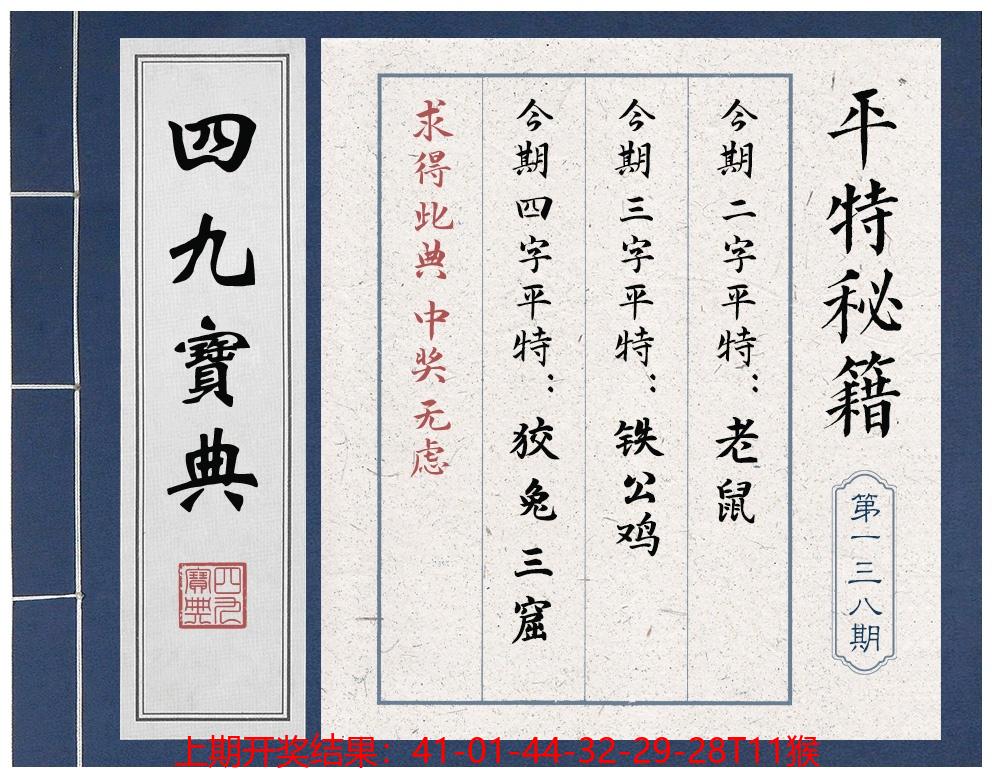 平特秘籍
第一三八期
今期二字平特：老鼠
今期三字平特：铁公鸡
今期四字平特：狡兔三窟
求得此典 中奖无虑
四九寶典
四九寶典
上期开奖结果：41-01-44-32-29-28T11猴